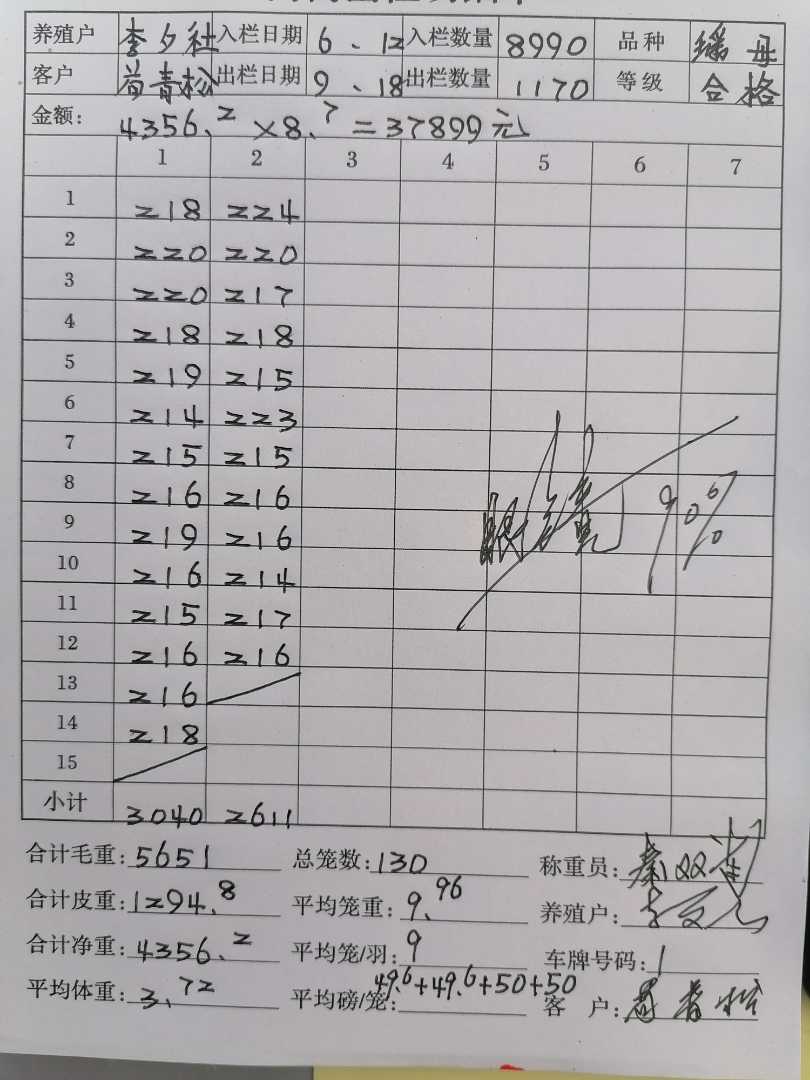 养殖户 李夕社 入栏日期 6、12 入栏数量 8990 品种 瑶母
客户 青松 出栏日期 9、18 出栏数量 1170 等级 合格
金额: 4356.2×8.7=37899元
1 2 3 4 5 6 7
1 218 224
2 220 220
3 220 217
4 218 218
5 219 215
6 214 223
7 215 215
8 216 216
9 219 216
10 216 214
11 215 217
12 216 216
13 216
14 218
15
小计 3040 2611
90%
合计毛重: 5651 总笼数: 130 称重员:
合计皮重: 1294.8 平均笼重: 9.96 养殖户:
合计净重: 4356.2 平均笼/羽: 9 车牌号码: 1
平均体重: 3.72 平均磅/笼: 49.6+49.6+50+50 客户: 青松